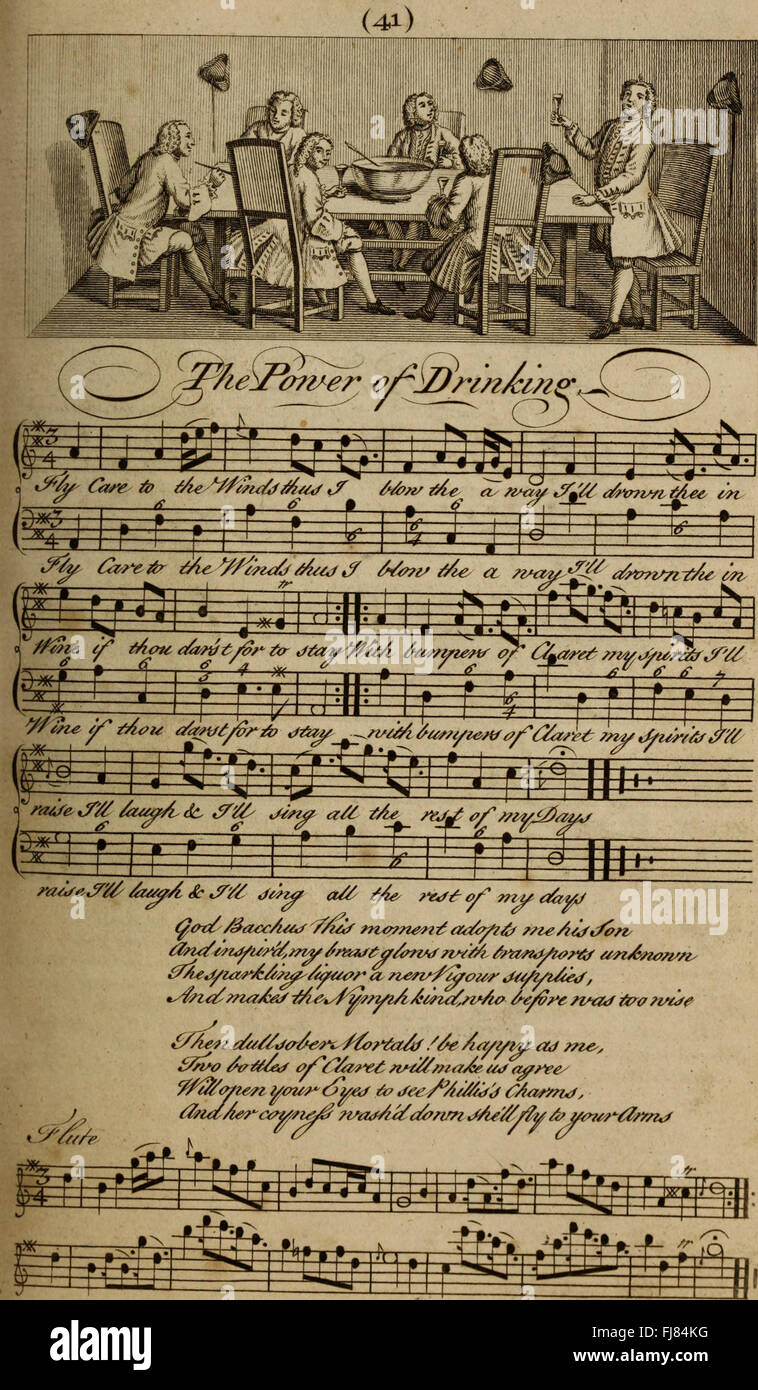 (41)
The Power of Drinking
3
4
Fly Care to the Winds thus I blow the a way I'll drown thee in
6 6 6 6 6 6
4
3
4
Fly Care to the Winds thus I blow the a way I'll drown the in
tr
Wine if thou dar'st for to stay With bumpers of Claret my spirits I'll
6 6 6 4 6 6 6 6 7
5 4
Wine if thou darst for to stay with bumpers of Claret my spirits I'll
raise I'll laugh & I'll sing all the rest of my Days
6 6 6 6 6
raise I'll laugh & I'll sing all the rest of my days
God Bacchus this moment adopts me his Son
And inspir'd, my breast glows with transports unknown
The sparkling liquor a new Vigour supplies,
And makes the Nymph kind, who before was too wise
Then dull sober Mortals! be happy as me,
Two bottles of Claret will make us agree
Will open your Eyes to see Phillis's Charms,
And her coyness wash'd down she'll fly to your Arms
Flute
3
4
tr
tr
alamy stock photo
FJ84KG
www.alamy.com